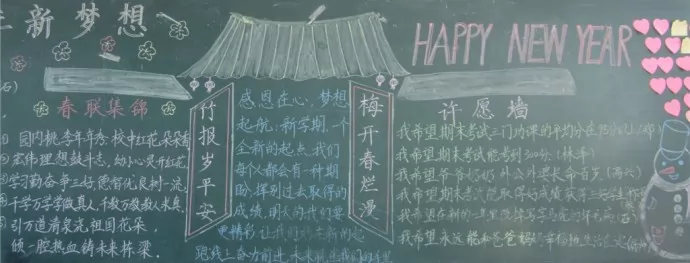 新梦想
HAPPY NEW YEAR
春联集锦
① 园内桃李年年秀，校中红花朵朵香
② 宏伟理想鼓斗志，幼小心灵开红花。
③ 学习勤奋争三好，德智优良树一流。
④ 千学万学学做真人，千教万教教人求真。
⑤ 引万道清泉浇祖国花朵，
倾一腔热血铸未来栋梁。
竹报岁平安
感恩在心，梦想
起航，新学期，一个
全新的起点，我们
每个都会有一种期
盼，挥别过去取得的
成绩，明天的我们要
更精彩让我们站在新的起
跑线上奋力前进
梅开春烂漫
许愿墙
我希望期末考试三门功课的平均分在95分以上
我希望期末考试能考到300分。
我希望爷爷奶奶外公外婆长命百岁
我希望期末考试能取得好成绩
我希望在新的一
我希望永远能和爸爸妈